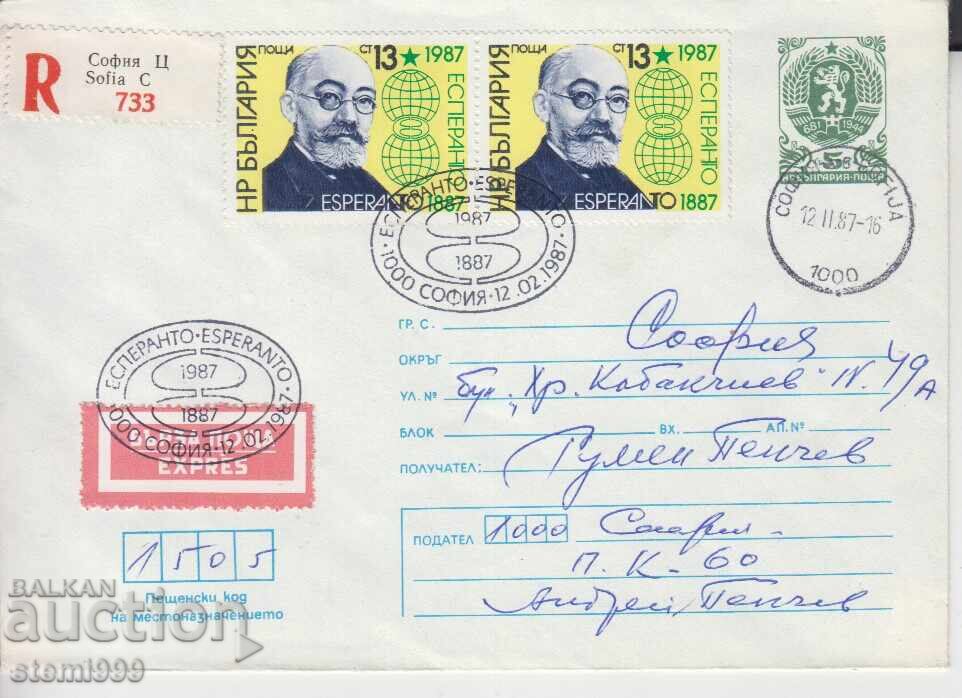 R
София Ц
Sofia C
733
НР БЪЛГАРИЯ
ПОЩА
СТ 13 ★ 1987
ЕСПЕРАНТО
ESPERANTO 1887
НР БЪЛГАРИЯ
ПОЩА
СТ 13 ★ 1987
ЕСПЕРАНТО
ESPERANTO 1887
681 1944
5
НР БЪЛГАРИЯ·ПОЩА
12.II.87-16
1000
ЕСПЕРАНТО·ESPERANTO
1987
1887
·1000 СОФИЯ·12.02.1987·
ГР. С. София
ОКРЪГ
УЛ. № бул. „Хр. Кабакчиев" N. 49 А
БЛОК ВХ. АП. №
ПОЛУЧАТЕЛ: Румен Пенчев
ЕСПЕРАНТО·ESPERANTO
1987
1887
·1000 СОФИЯ·12.02.1987·
EXPRES
ПОДАТЕЛ 1000 София
П. К - 60
Андрей Пенчев
1505
Пощенски код
на местоназначението
BALKAN
auction
stemi999